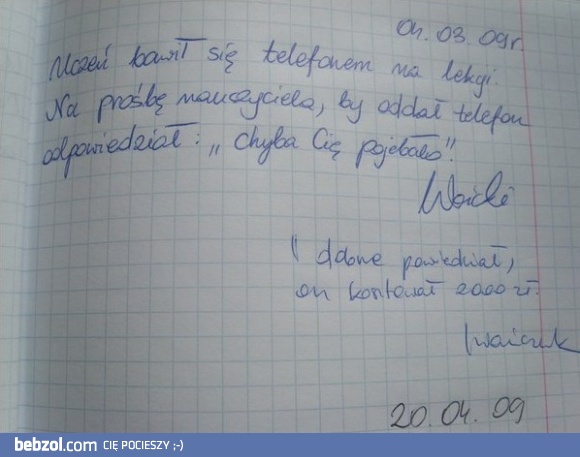 04.03.09r.
Uczeń bawił się telefonem na lekcji.
Na prośbę nauczyciela, by oddał telefon
odpowiedział: „Chyba Cię pojebało".
dobrze powiedział,
on kosztował 2000 zł.
20.04.09
bebzol.com CIĘ POCIESZY ;-)